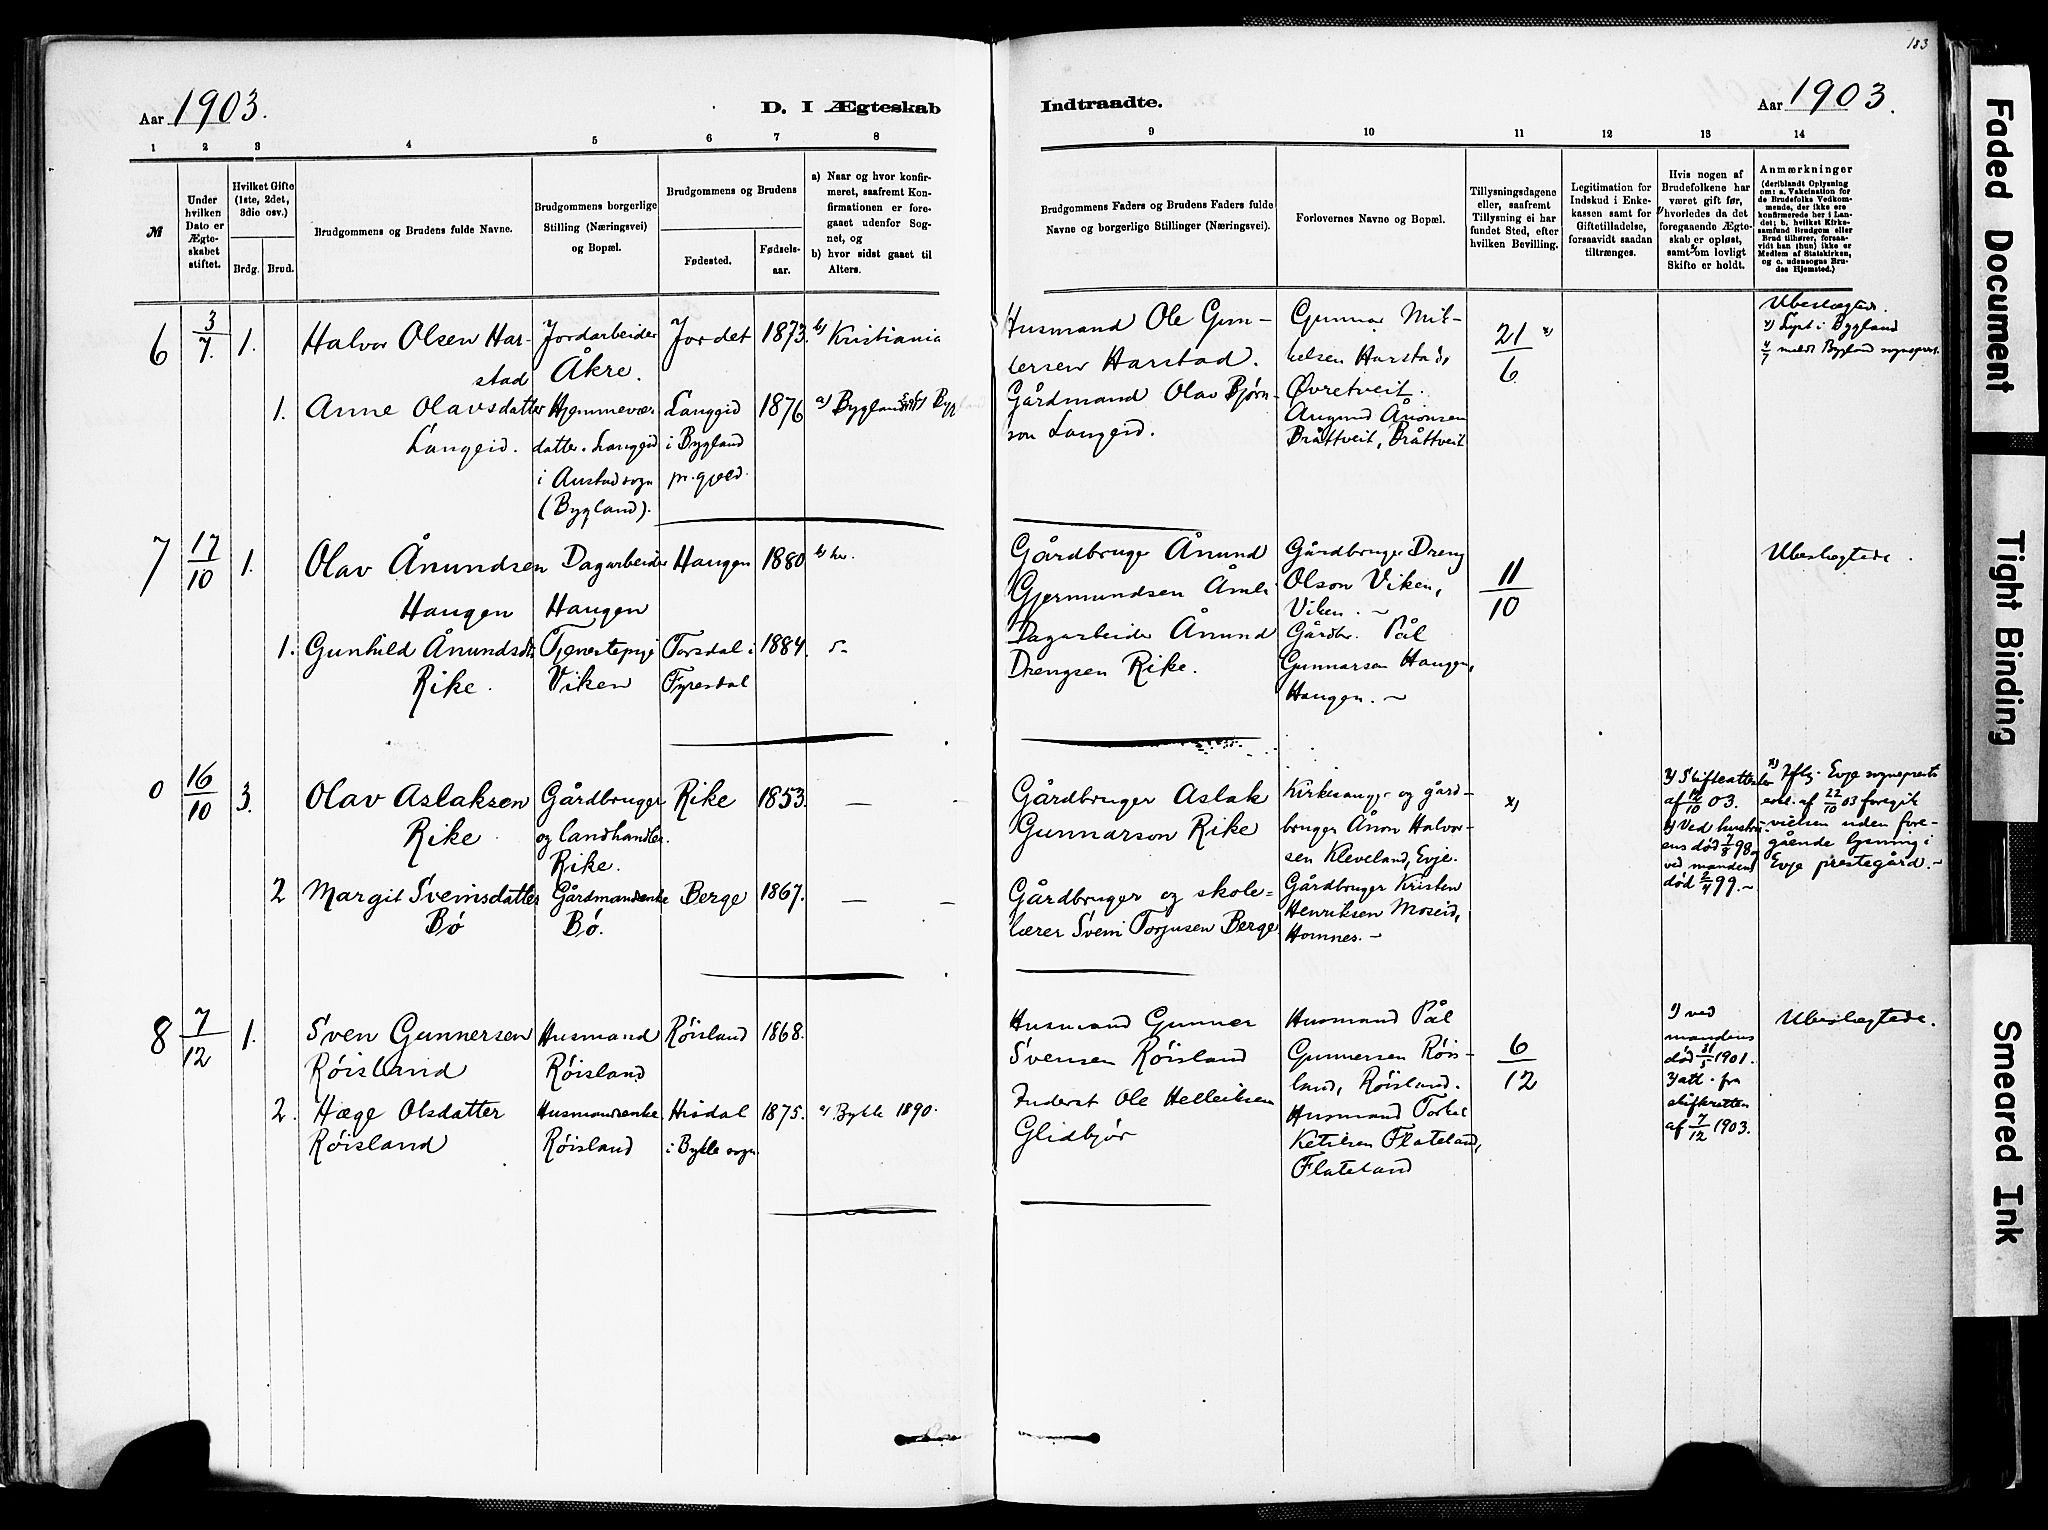 183
Aar 1903.
D. I Ægteskab
Indtraadte.
Aar 1903.
1 2 3 4 5 6 7 8
9 10 11 12 13 14
№
Under hvilken Dato er Ægteskabet stiftet.
Hvilket Gifte (1ste, 2det, 3die osv.)
Brdg. Brud.
Brudgommens og Brudens fulde Navne.
Brudgommens borgerlige Stilling (Næringsvei) og Bopæl.
Brudgommens og Brudens
Fødested.
Fødselsaar.
a) Naar og hvor konfirmeret, saafremt Konfirmationen er foregaaet udenfor Sognet, og
b) hvor sidst gaaet til Alters.
Brudgommens Faders og Brudens Faders fulde Navne og borgerlige Stillinger (Næringsvei).
Forlovernes Navne og Bopæl.
Tillysningsdagene eller, saafremt Tillysning ei har fundet Sted, efter hvilken Bevilling.
Legitimation for Indskud i Enkekassen samt for Giftetilladelse, forsaavidt saadan tiltrænges.
Hvis nogen af Brudefolkene har været gift før, hvorledes da det foregaaende Ægteskab er opløst, samt om lovligt Skifte er holdt.
Anmærkninger
(deriblandt Oplysning om: a. Vakcination for de Brudefolks Vedkommende, der ikke ere konfirmerede her i Landet; b. hvilket Kirkesamfund Brudgom eller Brud tilhører, forsaavidt han (hun) ikke er Medlem af Statskirken, og c. udensogns Brudes Hjemsted.)
6 3/7. 1. Halvor Olsen Harstad
Jordarbeider Åkre.
Jordet 1873. b) Kristiania
Husmand Ole Gunlersen Harstad.
Gunnar Mikkelsen Harstad, Øvretveit.
21/6 x)
Ubeslægtede.
x) Lyst i Bygland
4/7 meldt Bygland sogneprest.
1. Anne Olavsdatter Langeid.
Hjemmevær. datter. Langeid
i Austad sogn
(Bygland).
Langeid
i Bygland
pr. gjeld.
1876 a) Bygland
Gårdmand Olav Bjørnson Langeid.
Augund Ånonsen
Bråttveit, Bråttveit
7 17/10 1. Olav Ånundsen Haugen
Dagarbeider Haugen
Haugen 1880 b) her.
Gårdbruger Ånund
Gjermundsen Åmli
Gårdbruger Dreng
Olson Viken,
Viken. ~
11/10
Ubeslegtede.
1. Gunhild Ånundsdtr. Rike.
Tjenestepige Viken
Torsdal i
Fyresdal
1884.
Dagarbeider Ånund
Drengsen Rike.
Gårdbr. Pål
Gunnarson Haugen,
Haugen. ~
0 16/10 3. Olav Aslaksen Rike
Gårdbruger
og landhandler.
Rike.
Rike 1853. —
Gårdbruger Aslak
Gunnarson Rike
Kirkesanger og gårdbruger Ånon Halvorsen Kleveland, Evje.
x)
2) Skifteattester
af 12/10 03.
1) Ved hustruens død 7/8 98 og
ved mandens
død 2/4 99. ~
x) Iflg. Evje sogneprests
erkl. af 22/10 03 foregik
vielsen uden foregående lysning i
Evje prestegård. ~
2 Margit Sveinsdatter Bø
Gårdmandsenke Bø.
Berge 1867. — —
Gårdbruger og skolelærer Svein Torjusen Berge
Gårdbruger Kristen
Henriksen Moseid,
Hornnes. ~
8 7/12 1. Sven Gunnersen
Røisland
Husmand
Røisland
Røisland 1868.
Husmand Gunner
Svensen Røisland
Husmand Pål
Gunnersen Røisland, Røisland.
6/12
1) ved
mandens
død 31/5 1901.
2) att. fra
skifteretten
af 7/12 1903.
Ubeslegtede.
2. Hæge Olsdatter
Røisland
Husmandsenke
Røisland
Hisdal
i Bykle sogn
1875. a) Bykle 1890.
Inderst Ole Helleiksen
Glidbjør
Husmand Torkel
Ketilsen Flateland,
Flateland
Faded Document
Tight Binding
Smeared Ink